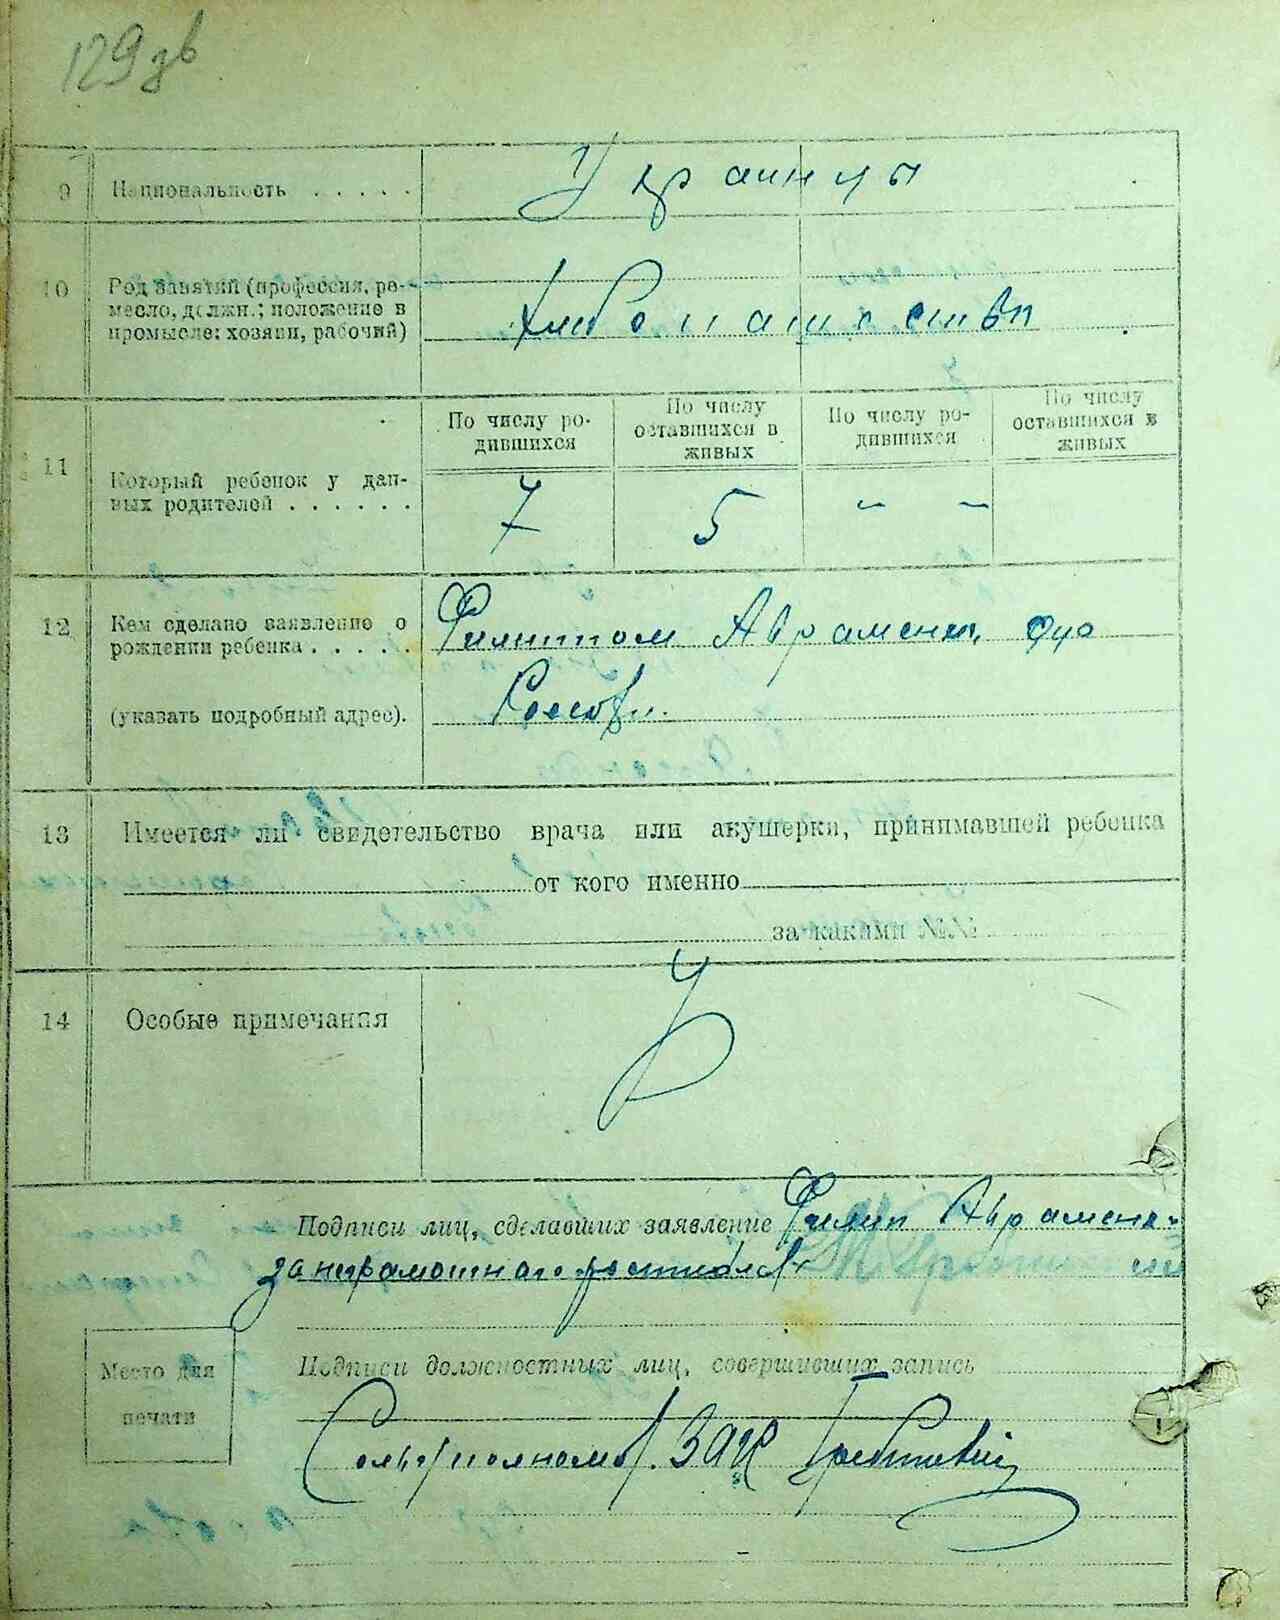 129 зв
9 Национальность . . . . . Украинцы
10 Род занятий (профессия, ре-
месло, должн.; положение в
промысле: хозяин, рабочий)
11 Который ребенок у дан-
ных родителей . . . . . .
По числу ро-
дившихся
По числу
оставшихся в
живых
По числу ро-
дившихся
По числу
оставшихся в
живых
7 5 – –
12 Кем сделано заявление о
рождении ребенка . . . . .
(указать подробный адрес).
Филиппом Авраменко
13 Имеется ли свидетельство врача или акушерки, принимавшей ребенка
от кого именно
за какими №№
14 Особые примечания
Подписи лиц, сделавших заявление Филип Авраменко
за неграмотного
Место для
печати
Подписи должностных лиц, совершивших запись
ЗАГС